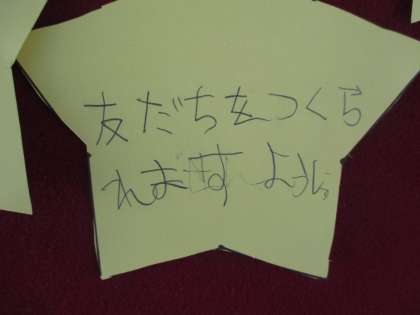 友だちをつくら
れますように。